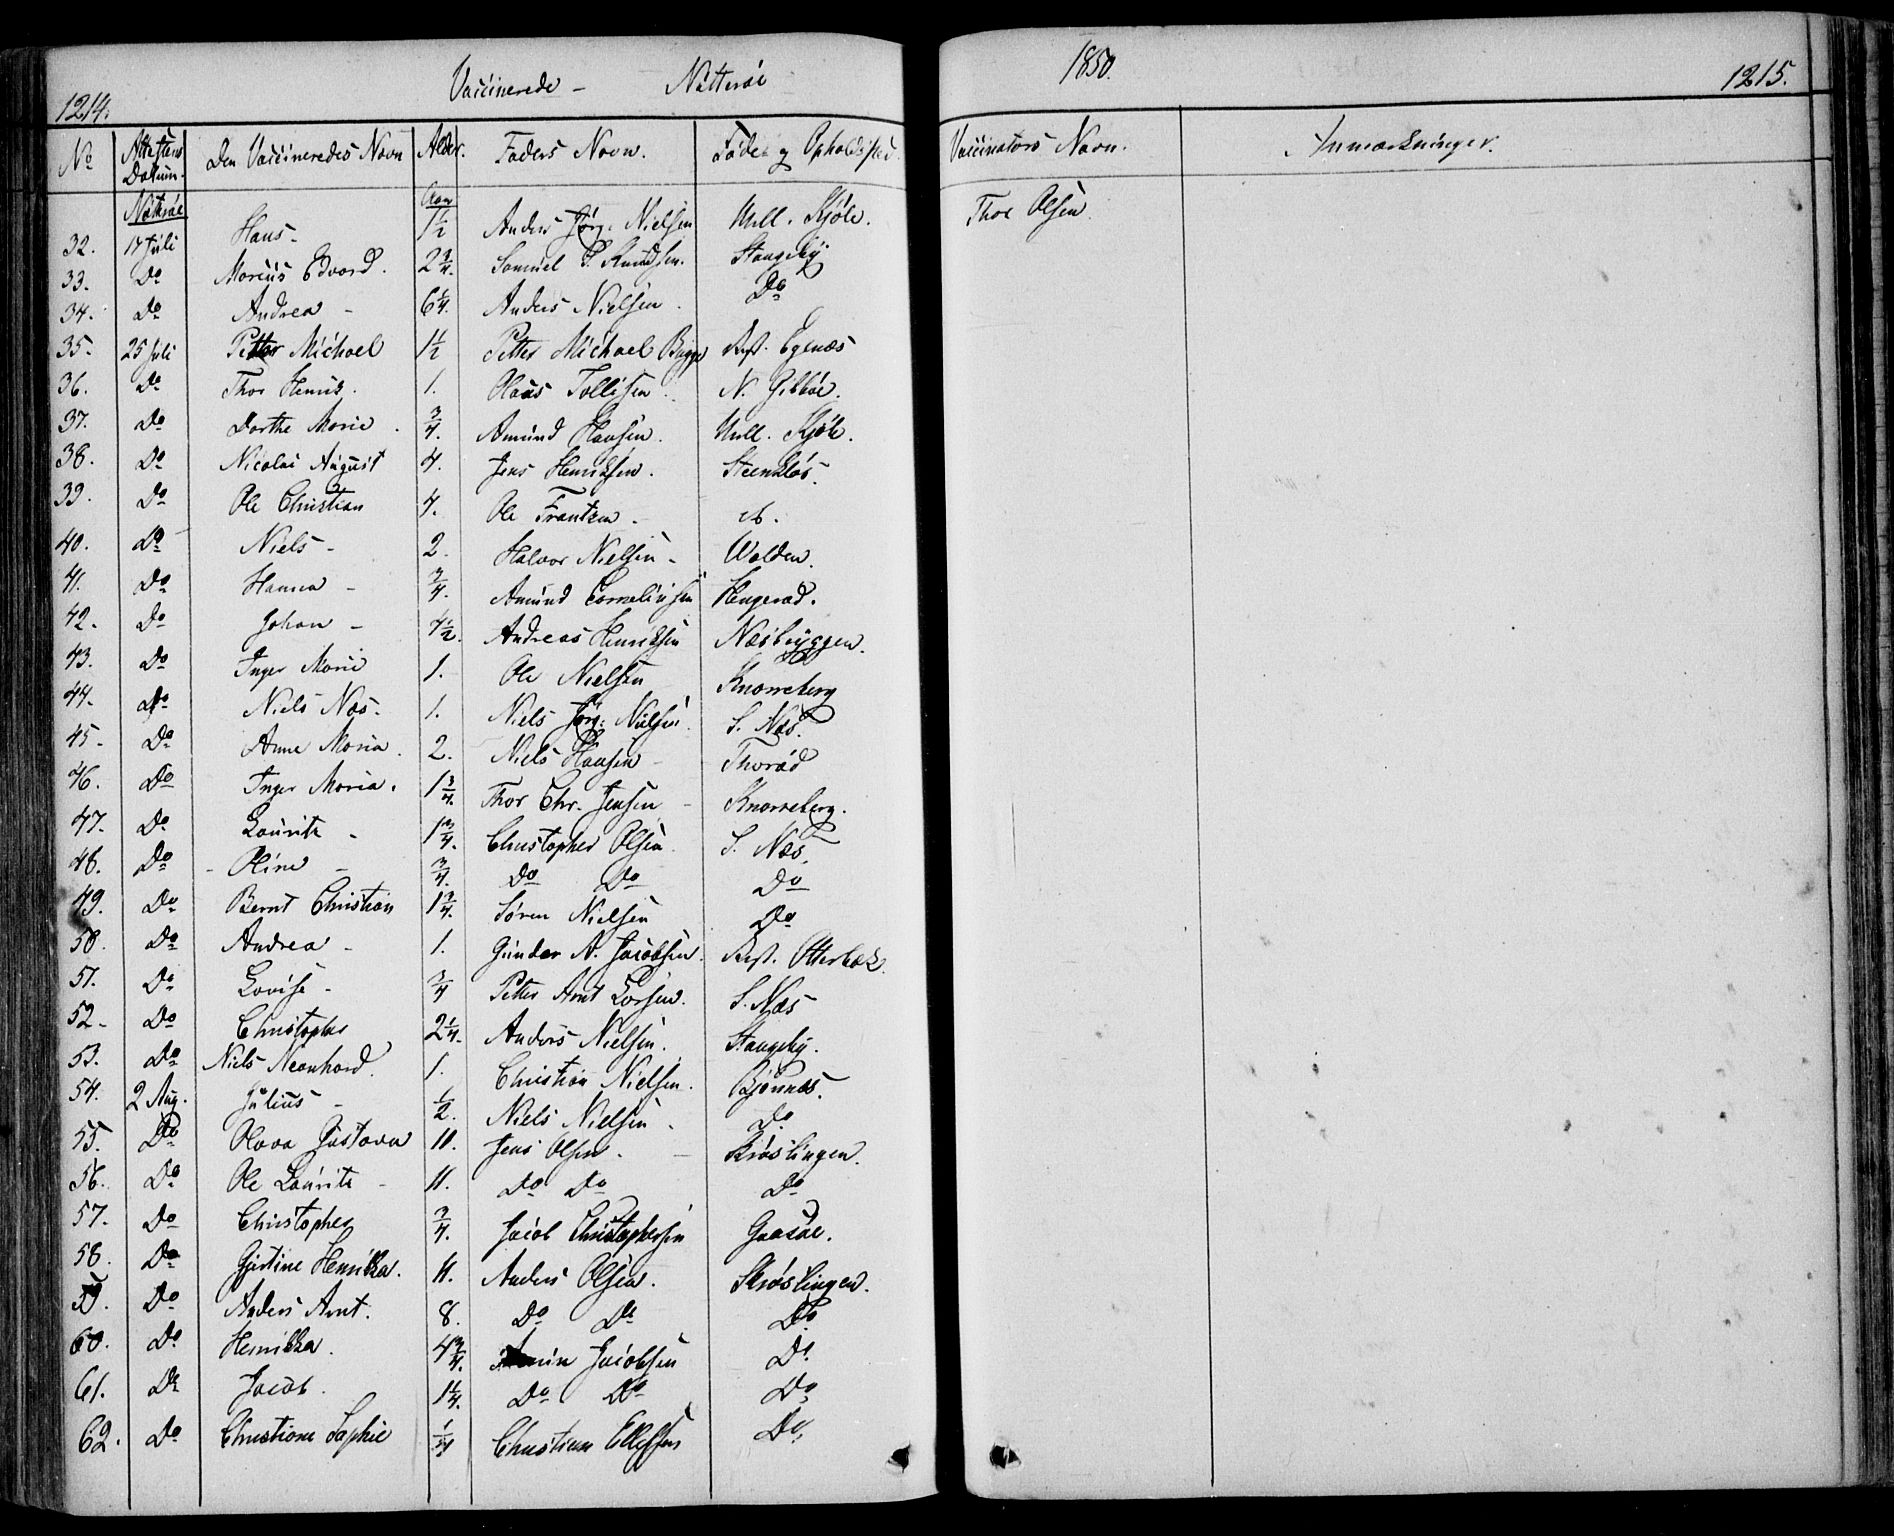 1214. Vaccinerede - Nøtterøe 1850. 1215.
No Attestens Datum. Den Vaccineredes Navn Alder. Faders Navn. Føde- og Opholdsted. Vaccinators Navn. Anmærkninger.
Nøtterøe Aar
32. 17 Juli Hans - 1½ Anders Jørg. Nielsen Unll. Kjøle. Thor Olsen
33. Do Marcus Edvard. 2¾. Samuel P. Knudsen. Stangeby
34. Do Andrea - 6¼. Anders Nielsen. Do
35. 25 Juli Petter Michael 1½ Petter Michael Bugge Røst. Egenæs
36. Do Thor Henrik. 1. Olaus Tollefsen. N. Giktøe.
37. Do Dorthe Marie. ¾. Amund Hansen. Unll. Kjøle.
38. Do Nicolai August 4. Jens Henriksen. Steenkløs.
39. Do Ole Christian 4. Ole Frantzen -
40. Do Niels - 2. Halvor Nielsen - Wolden.
41. Do Hanna - ¾. Amund Corneliusen Hengerød.
42. Do Johan - 4½. Andreas Henriksen Næsbryggen.
43. Do Inger Marie 1. Ole Nielsen Knarreberg
44. Do Niels Næs. 1. Niels Jørg: Nielsen. S. Næs.
45. Do Anne Maria. 2. Niels Hansen - Thorød
46. Do Inger Maria. 1¾. Thor Chr. Jensen - Knarreberg.
47. Do Lauritz - 1¾. Christopher Olsen S. Næs.
48. Do - Oline - ¾. Do Do Do
49. Do Bernt Christian 1¾. Søren Nielsen Do
50. Do Andrea - 1. Gunder A. Jacobsen. Røst. Otterbæk.
51. Do Lovise - ¾ Petter Arnt Larsen. S. Næs
52. Do Christopher 2¼. Anders Nielsen. Stangeby.
53. Do Niels Neonhard. 1. Christian Nielsen. Bjønnes.
54. 2 Aug. Julius - ½. Niels Nielsen - Do
55. Do Olava Gustava 11. Jens Olsen. - Krøslingen.
56. Do Ole Lauritz - 11. Do Do Do
57. Do Christopher ¾. Jacob Christophersen Gaasøe.
58. Do Gjertine Henrikka. 11. Anders Olsen. Skrøslingen.
59. Do Anders Arnt. 8. Do Do Do
60. Do Henrikka. 4¾. Jacobsen Do
61. Do Jacob. 1¼. Do Do Do
62. Do Christiane Sophie ¼ Christian Ellefsen Do